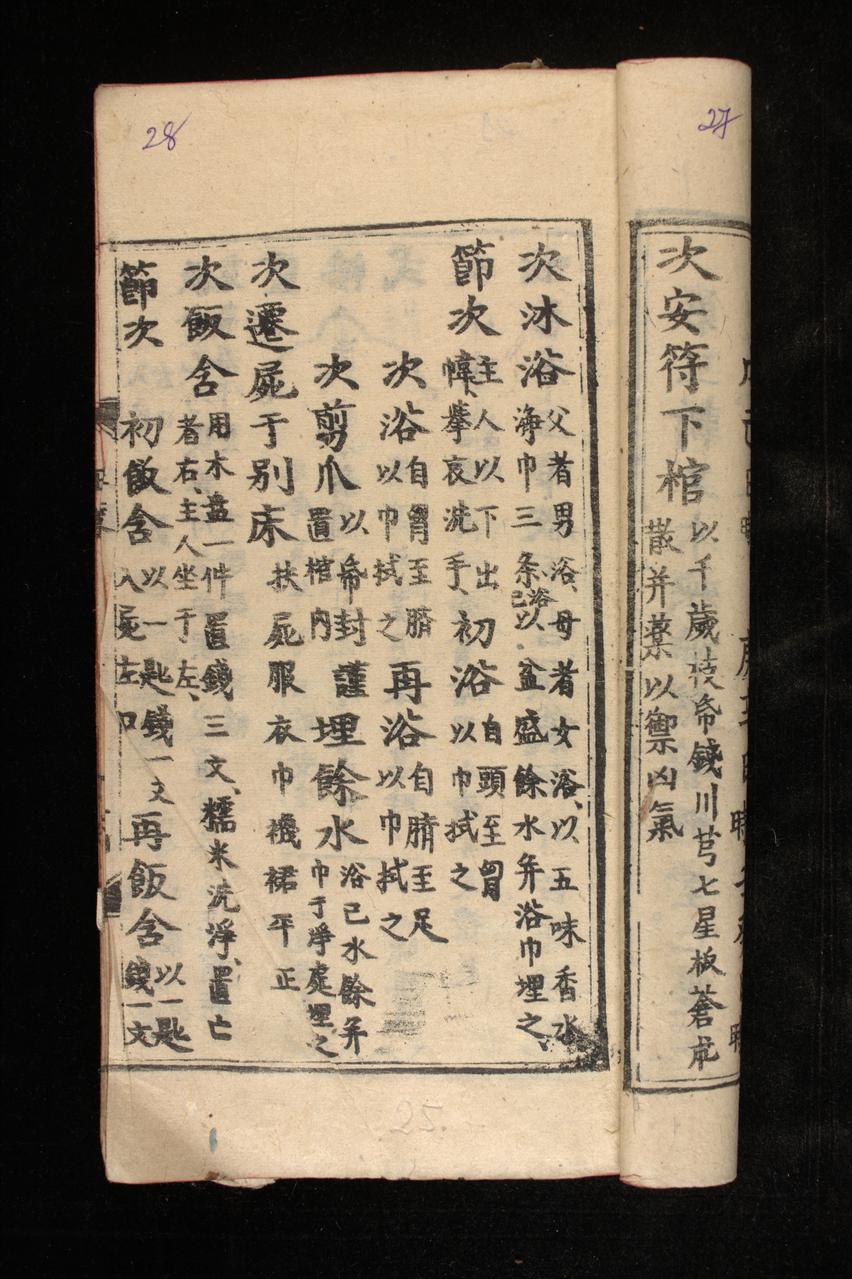 27
次安符下棺 以千歲枝帋錢川芎七星板蒼朮
散并藥以禦凶氣
28
次沐浴 父者男浴、母者女浴、以五味香水
淨巾三条浴已以盆盛餘水并浴巾埋之、
節次 主人以下出
幃、擧哀洗手、初浴 自頭至胷
以巾拭之
次浴 自胷至臍
以巾拭之 再浴 自臍至足
以巾拭之
次剪爪 以帋封
置棺內 謹埋餘水 浴已水餘并
巾于淨處埋之
次遷屍于別床 扶屍服衣巾襪裙平正
次飯含 用木盘一件置錢三文、糯米洗淨、置亡
者右、主人坐于左、
節次 初飯含 以一匙錢一文
入屍左口 再飯含 以一匙
錢一文
25